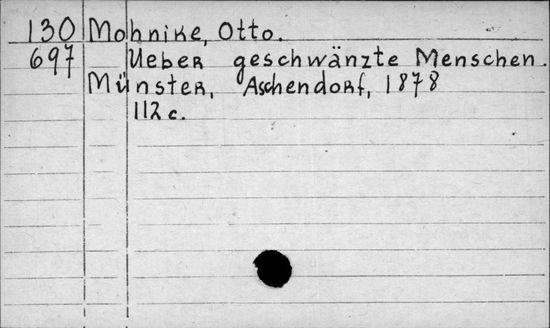 130 Mohnike, Otto.
697 Ueber geschwänzte Menschen.
Münster, Aschendorf, 1878
112 c.